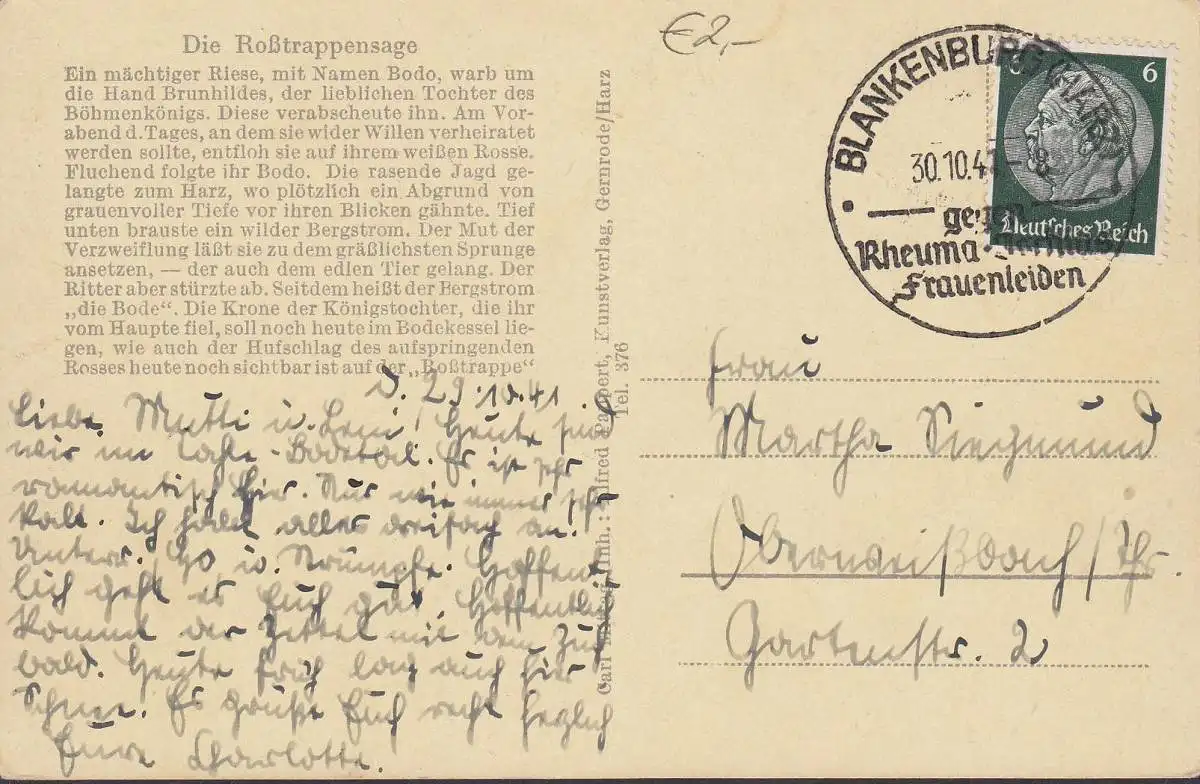 Die Roßtrappensage
Ein mächtiger Riese, mit Namen Bodo, warb um
die Hand Brunhildes, der lieblichen Tochter des
Böhmenkönigs. Diese verabscheute ihn. Am Vor-
abend d. Tages, an dem sie wider Willen verheiratet
werden sollte, entfloh sie auf ihrem weißen Rosse.
Fluchend folgte ihr Bodo. Die rasende Jagd ge-
langte zum Harz, wo plötzlich ein Abgrund von
grauenvoller Tiefe vor ihren Blicken gähnte. Tief
unten brauste ein wilder Bergstrom. Der Mut der
Verzweiflung läßt sie zu dem gräßlichsten Sprunge
ansetzen, — der auch dem edlen Tier gelang. Der
Ritter aber stürzte ab. Seitdem heißt der Bergstrom
„die Bode“. Die Krone der Königstochter, die ihr
vom Haupte fiel, soll noch heute im Bodekessel lie-
gen, wie auch der Hufschlag des aufspringenden
Rosses heute noch sichtbar ist auf der „Roßtrappe“
D. 29.10.41
Liebe Mutti u. Leni! Heute sind
wir im Bodetal. Es ist sehr
romantisch hier. Nur wie immer sehr
kalt. Ich habe alles dreifach an.
Unterr. u. Strümpfe. Hoffent-
lich geht es Euch gut. Hoffentlich
kommt der Zettel mit dem Zug
bald. Heute früh lag auch hier
Schnee. Es grüßt Euch recht herzlich
Eure Charlotte.
Carl Inh.: Alfred Pappert, Kunstverlag, Gernrode/Harz
Tel. 376
€2,-
BLANKENBURG (HARZ)
30.10.41-8
gegen
Rheuma
Frauenleiden
6 6
Deutsches Reich
Frau
Martha Siegmund
Oberweißbach/Thr.
Gartenstr. 2